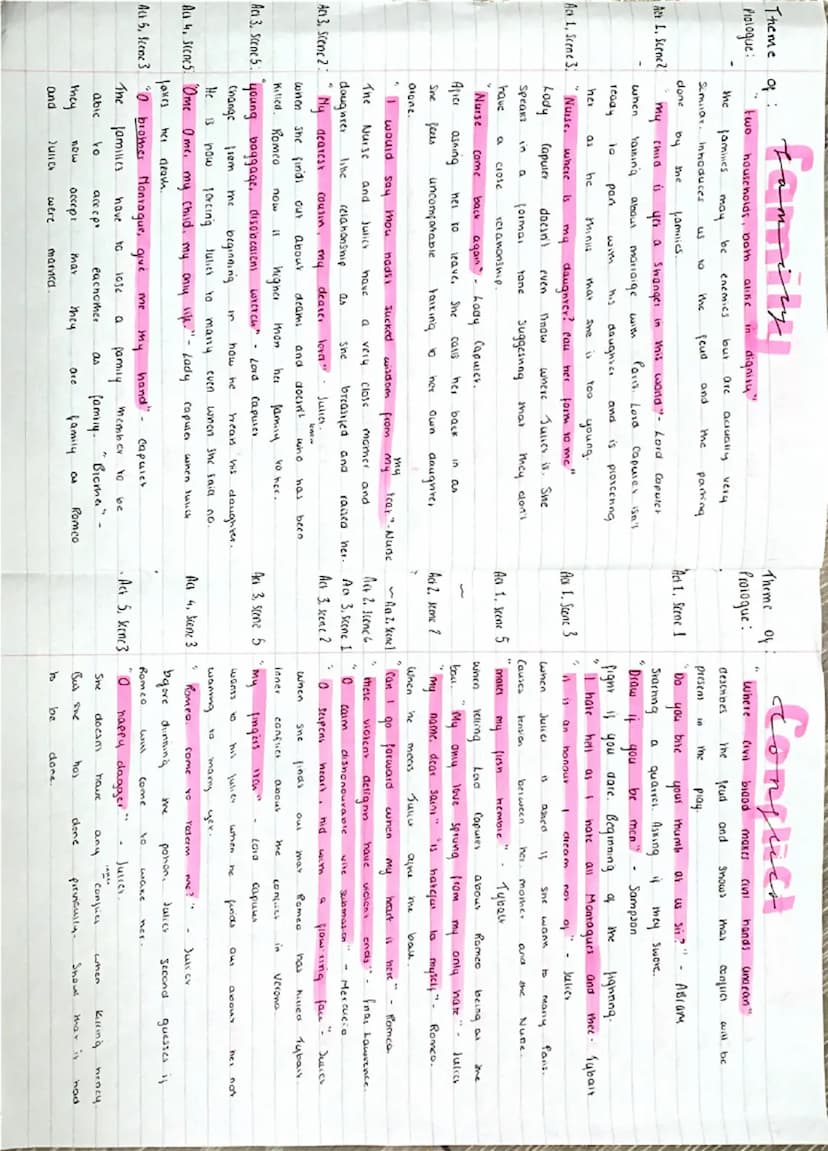 Theme of: Family
Prologue: "two households, both alike in dignity"
- The families may be enemies but are actually very
similar. Introduces us to the feud and the parting
done by the families.
Act 1, Scene 2: "my child is yet a stranger in this world" - Lord Capulet
- when talking about marriage with Paris. Lord Capulet isn't
ready to part with his daughter and is protecting
her as he thinks that she is too young.
Act 1, Scene 3: "Nurse, where is my daughter? Call her forth to me"
Lady Capulet doesn't even know where Juliet is. She
speaks in a formal tone suggesting that they don't
have a close relationship.
"Nurse come back again" - Lady Capulet.
After asking her to leave, she calls her back in as
she feels uncomfortable talking to her own daughter
alone.
"I would say thou hadst sucked wisdom from my teat" - Nurse
The Nurse and Juliet have a very close mother and
daughter like relationship as she breastfed and raised her.
Act 3, Scene 2: "My dearest cousin, my dearer lord" - Juliet.
when she finds out about deaths and doesn't know who has been
killed. Romeo now is higher than her family to her.
Act 3, Scene 5: "young baggage, disobedient wretch" - Lord Capulet
change from the beginning in how he treats his daughter.
He is now forcing Juliet to marry even when she said no.
Act 4, Scene 5: "O me O me, my child, my only life." - Lady Capulet when Juliet
fakes her death.
Act 5, Scene 3 "O brother Montague, give me thy hand" - Capulet
The families have to lose a family member to be
able to accept eachother as family. "Brother" -
they now accept that they are family as Romeo
and Juliet were married.
Theme of: Conflict
Prologue: "Where civil blood makes civil hands unclean"
describes the feud and shows that conflict will be
present in the play.
Act 1, Scene 1 "Do you bite your thumb at us sir?" - Abram
Starting a quarrel. Asking if they swore.
"Draw if you be men" - Sampson
fight if you dare. Beginning of the fighting.
"I hate hell as I hate all Montagues and thee - Tybalt
Act 1, Scene 3 "it is an honour I dream not of" - Juliet
when Juliet is asked if she wants to marry Paris.
Causes tension between her mother and the Nurse.
Act 1, Scene 5 "makes my flesh tremble" - Tybalt
when telling Lord Capulet about Romeo being at the
~ ball. "My only love sprung from my only hate" - Juliet
Act 2, Scene 2 "my name, dear saint" is hateful to myself" - Romeo.
When he meets Juliet after the ball.
~ Act 2, Scene 1 "Can I go forward when my heart is here" - Romeo
Act 2, Scene 6 "these violent delights have violent ends" - Friar Lawrence.
Act 3, Scene 1 "O calm dishonourable vile submission" - Mercutio
Act 3, Scene 2 "O serpent heart, hid with a flow'ring face" - Juliet
When she finds out that Romeo has killed Tybalt
Inner conflict about the conflict in Verona
Act 3, Scene 5 "My fingers itch" - Lord Capulet
wants to hit Juliet when he finds out about her not
wanting to marry yet.
Act 4, Scene 3 "Romeo, come to redeem me?" - Juliet
before drinking the potion. Juliet second guesses if
Romeo will come to wake her.
Act 5, Scene 3 "O happy dagger" - Juliet.
She doesn't have any inner conflict when killing herself
but she has done previously. Shows that it had
to be done.